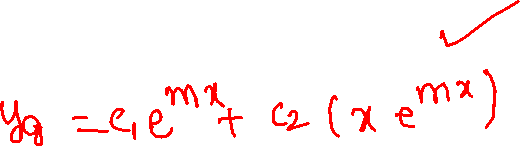 y_g = c₁e^{mx} + c₂(x e^{mx})